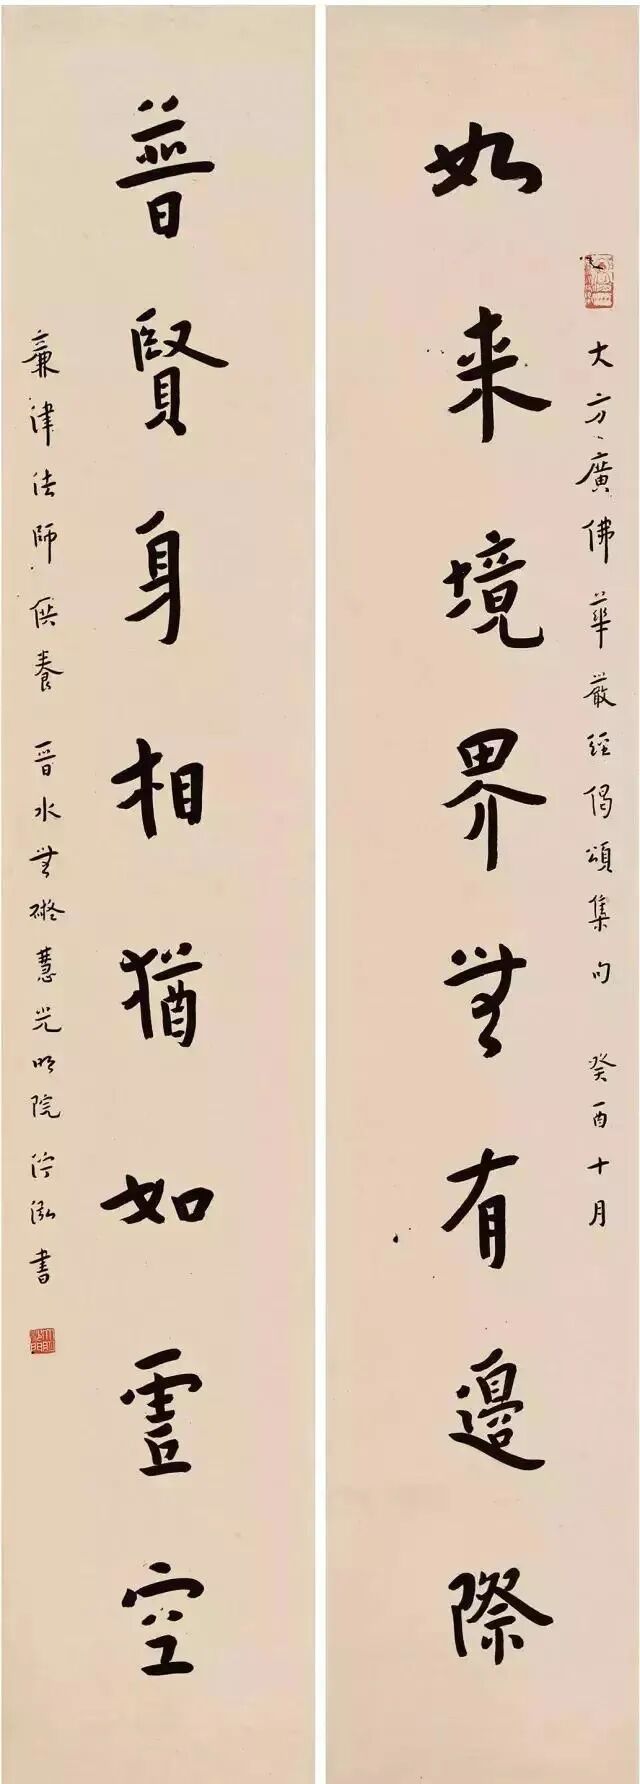 大方廣佛華嚴經偈頌集句 癸酉十月
如来境界無有邊際
普賢身相猶如虛空
律法師供養 晉水無礙慧光明院泓書